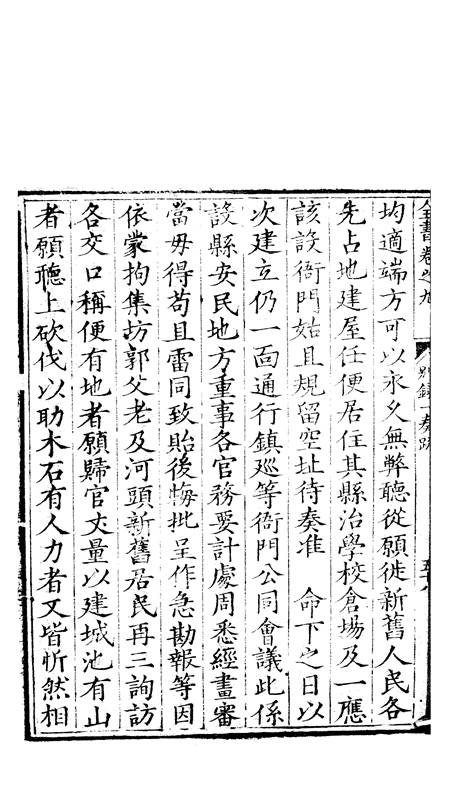 全書卷之九
別錄一奏疏
五十八
均適端方可以永久無弊聽從願徙新舊人民各
先占地建屋任便居住其縣治學校倉場及一應
該設衙門始且規留空址待奏准　命下之日以
次建立仍一面通行鎮廵等衙門公同會議此係
設縣安民地方重事各官務要計處周悉經畫審
當毋得苟且雷同致貽後悔批呈作急勘報等因
依蒙拘集坊郭父老及河頭新舊居民再三詢訪
各交口稱便有地者願歸官丈量以建城池有山
者願聽上砍伐以助木石有人力者又皆忻然相